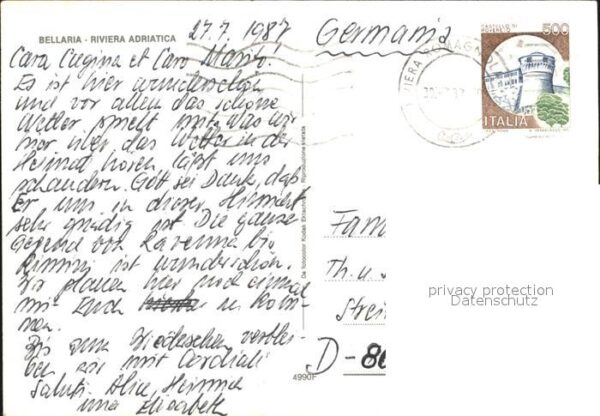 BELLARIA - RIVIERA ADRIATICA
27.7.1987
Germania
Cara Cugina et Caro Marito!
Es ist hier wunderschön
und vor allem das schöne
Wetter spielt mit, was wir
nur über das Wetter in der
Heimat hören läßt uns
schaudern. Gott sei Dank, daß
Er uns in dieser Hinsicht
sehr gnädig ist. Die ganze
Gegend von Ravenna bis
Rimini ist wunderschön.
Wir planen hier noch einmal
mit Euch zu kommen.
Bis zum Wiedersehen verblei-
ben wir mit Cordiali
Saluti. Alice, Heinrich
und Elisabeth
4990F
CASTELLO DI
ROVERETO
500
ITALIA
RIVIERA ROMAGNOLA
Fam
Th. u.
Strei
D-80
privacy protection
Datenschutz